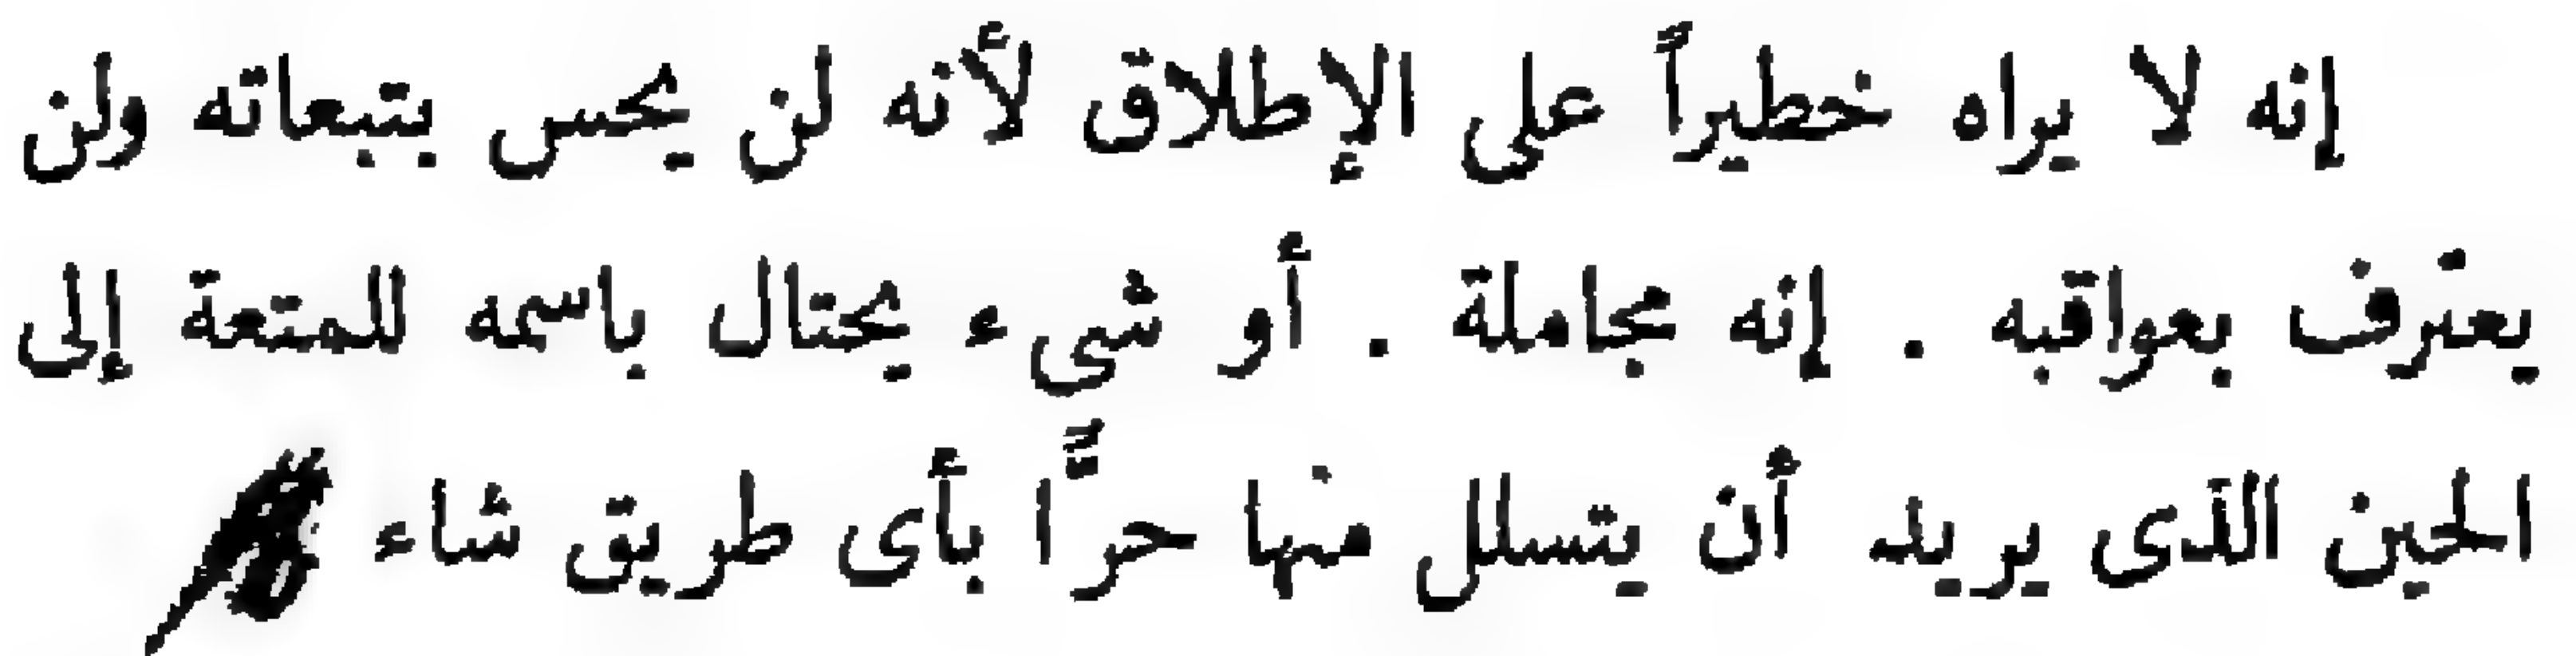 إنه لا يراه خطيراً على الإطلاق لأنه لن يحس بتبعاته ولن
يعترف بعواقبه . إنه مجاملة . أو شىء يحتال باسمه للمتعة إلى
الحين الذى يريد أن يتسلل منها حرًّا بأى طريق شاء